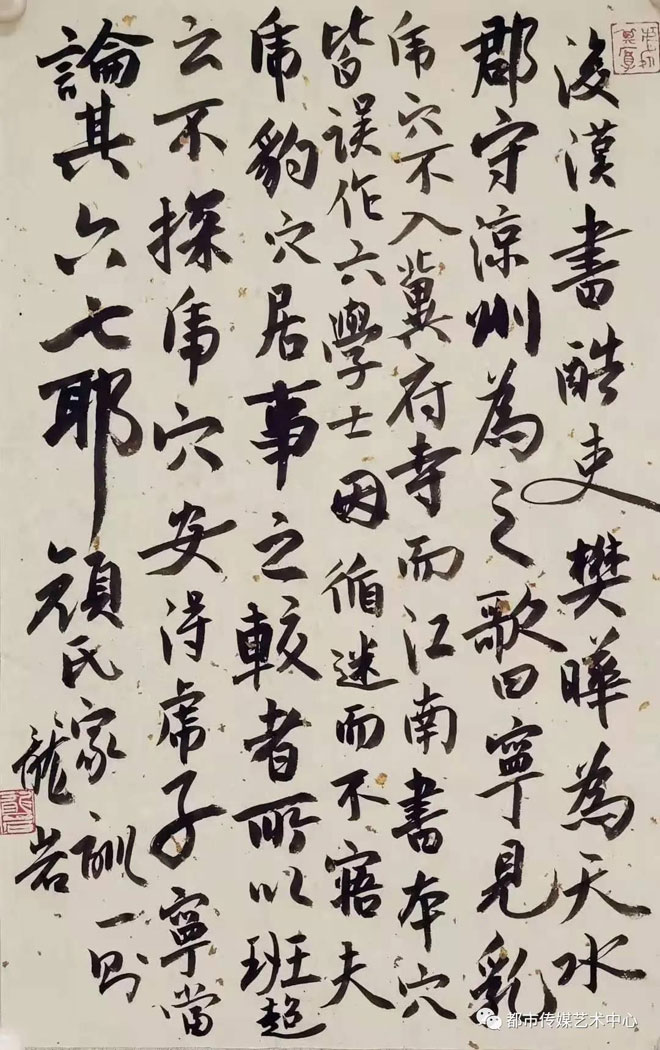 後漢書酷吏樊曄為天水
郡守涼州為之歌曰寧見乳
虎穴不入冀府寺而江南書本穴
皆误作六學士因循迷而不寤夫
虎豹穴居事之較者所以班超
云不探虎穴安得虎子寧當
論其六七耶 顔氏家訓一则
龍岩
都市传媒艺术中心